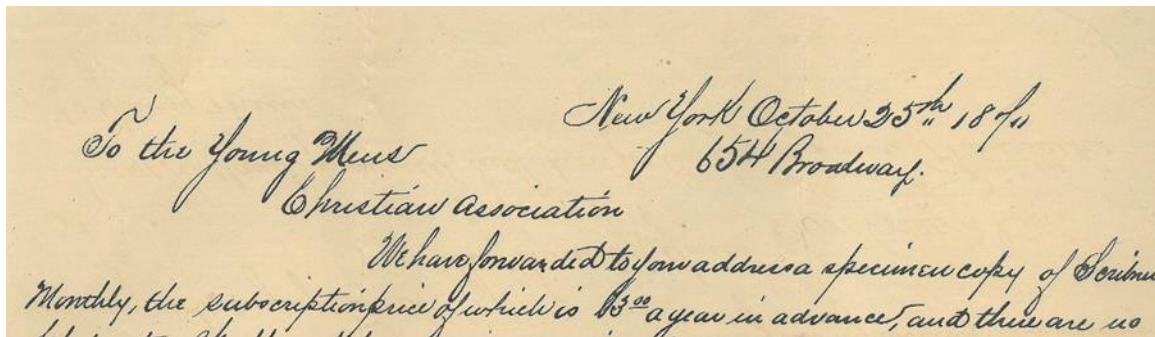 New York October 25th 187
654 Broadway.
To the Young Mens
Christian Association
We have forwarded to your address a specimen copy of Scribner
Monthly, the subscription price of which is $3.00 a year in advance, and there are no